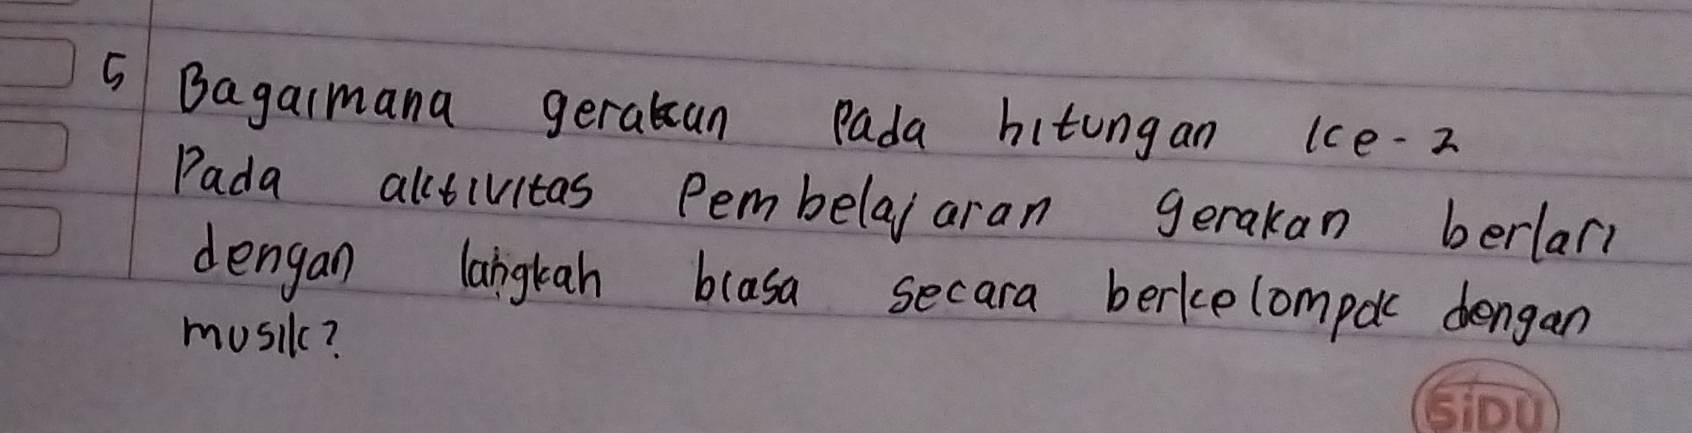 5 Bagaimana gerakan Pada hitungan ke-2
Pada aktivitas Pembelajaran gerakan berlari
dengan langkah biasa secara berkelompok dengan
musik?
SiDU